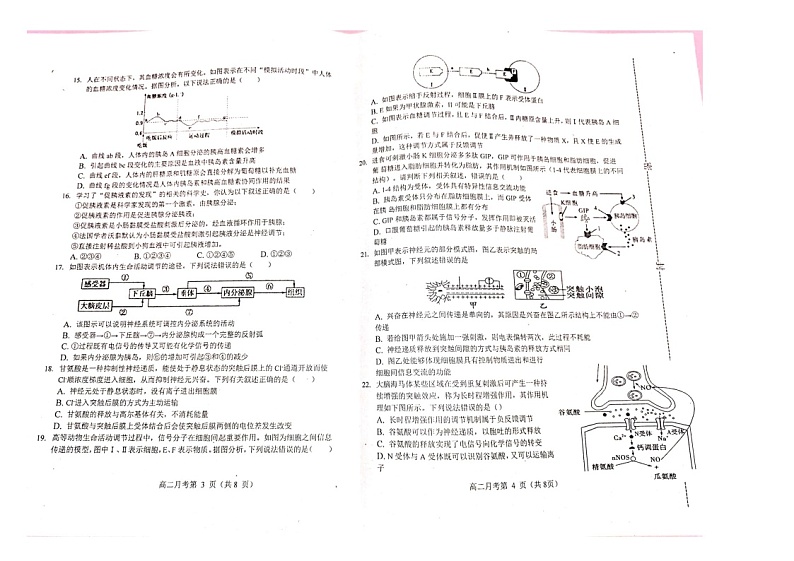 15. 人在不同状态下，其血糖浓度会有所变化，如图表示在不同“模拟活动时段”中人体
的血糖浓度变化情况。据图分析，以下说法正确的是（ ）
血糖浓度(g·L⁻¹)
吃饭
运动过程
模拟活动时段
A. 曲线ab段，人体内的胰岛A细胞分泌的胰高血糖素会增多
B. 引起曲线bc段变化的主要原因是血液中胰岛素含量升高
C. 曲线ef段，人体内的肝糖原和肌糖原会直接分解为葡萄糖以补充血糖
D. 曲线fg段的变化情况是人体内胰岛素和胰高血糖素协同作用的结果
16. 学习了“促胰液素的发现”的相关的科学史，你认为以下叙述正确的是（ ）
①促胰液素是科学家发现的第一个激素，由胰腺分泌；
②促胰液素的作用是促进胰腺分泌胰液；
③促胰液素是小肠黏膜受盐酸刺激后分泌的，经血液循环作用于胰腺；
④法国学者沃泰默认为小肠黏膜受盐酸刺激引起胰液分泌是神经调节；
⑤直接注射稀盐酸到小狗血液中可引起胰液增加。
A. ②③④ B. ①②③④ C. ②③④⑤ D. ①②③
17. 如图表示机体内生命活动调节的途径，下列说法错误的是（ ）
感受器 ① 下丘脑 ③ 垂体 ④ 内分泌腺 ⑤ 组织
大脑皮层 ②
⑥
A. 该图示可以说明神经系统可调控内分泌系统的活动
B. 感受器→①→下丘脑→⑦→内分泌腺构成一个完整的反射弧
C. ①过程既有电信号的传导又可能有化学信号的传导
D. 如果内分泌腺为胰岛，则⑤的增加可引起③和④的减少
18. 甘氨酸是一种抑制性神经递质，能使处于静息状态的突触后膜上的Cl⁻通道开放而使
Cl⁻顺浓度梯度进入细胞，从而抑制神经元兴奋。下列有关叙述正确的是（ ）
A. 神经元处于静息状态时，没有离子进出细胞膜
B. Cl⁻进入突触后膜的方式为主动运输
C. 甘氨酸的释放与高尔基体有关，不消耗能量
D. 甘氨酸与突触后膜上受体结合后会使突触后膜两侧的电位差发生改变
19. 高等动物生命活动调节过程中，信号分子在细胞间起重要作用。如图为细胞之间信息
传递的模型，图中Ⅰ、Ⅱ表示细胞，E、F表示物质。据图分析，下列说法错误的是（ ）
高二月考第 3 页（共8 页）
A. 如图表示缩手反射过程，细胞Ⅱ膜上的F表示受体蛋白
B. E如果为甲状腺激素，Ⅱ可能是下丘脑
C. 如图表示血糖调节过程，且E与F结合后，Ⅱ内糖原含量上升，则Ⅰ代表胰岛A细
胞
D. 如图所示，若E与F结合后，促使Ⅱ产生并释放了一种物质X，且X使E的生成
量增加，这种调节方式属于反馈调节
20. 进食可刺激小肠K细胞分泌多多肽GIP，GIP可作用于胰岛细胞和脂肪细胞，促进
葡萄糖进入脂肪细胞并转化为脂肪，其作用机制如图所示（1-4代表细胞膜上的不同
结构）。请判断下列相关叙述，错误的是（ ）
A. 1-4结构为受体，受体具有特异性信息交流功能
B. 胰岛素受体只分布在脂肪细胞上，而GIP受体
在胰岛细胞和脂肪细胞膜上都有分布
C. GIP和胰岛素都属于信号分子，发挥作用即被灭活
D. 口服葡萄糖引起的胰岛素释放量多于静脉注射葡
萄糖
进食→血糖升高
K细胞
GIP
小肠
胰岛细胞
脂肪细胞
胰岛素
21. 如图甲表示神经元的部分模式图，图乙表示突触的局
部模式图，下列叙述错误的是
甲
乙
突触小泡
突触间隙
A. 兴奋在神经元之间传递是单向的，其原因是兴奋在图乙所示结构上不能由①→②
传递
B. 若给图甲箭头处施加一强刺激，则电表偏转两次，此过程不耗能
C. 神经递质释放到突触间隙的方式与胰岛素的释放方式相同
D. 图乙处能够体现细胞膜具有控制物质运出和进行
细胞间信息交流的功能
22. 大脑海马体某些区域在受到重复刺激后可产生一种持
续增强的突触效应，称为长时程增强作用，其作用机
理如下图所示，下列说法错误的是（ ）
A. 长时程增强作用的调节机制属于负反馈调节
B. 谷氨酸可以作为神经递质，以胞吐的形式释放
C. 谷氨酸的释放实现了电信号向化学信号的转变
D. N受体与A受体既可以识别谷氨酸，又可以运输离
子
NO
谷氨酸
N受体
A受体
Ca²⁺
Na⁺
钙调蛋白
nNOS
NO
精氨酸
瓜氨酸
高二月考第 4 页（共8页）